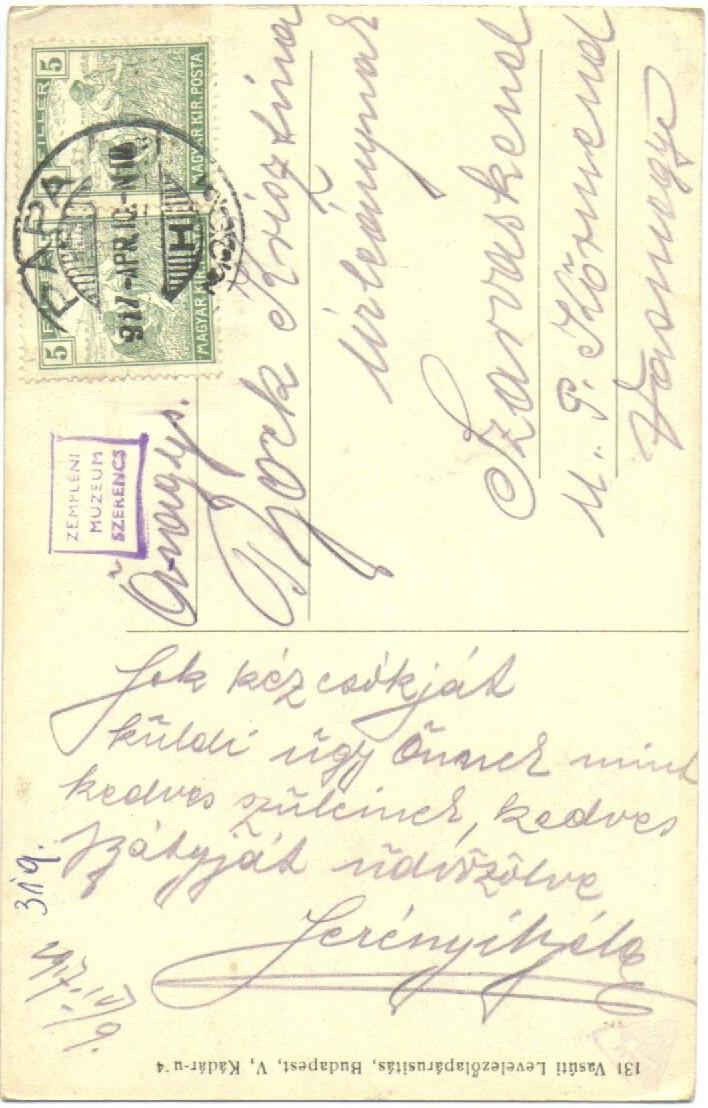 5 FILLER 5
MAGYAR KIR. POSTA
MAGYAR KIR. POSTA
PÁPA
917 APR. 10. N10
H
ZEMPLÉNI
MÚZEUM
SZERENCS
Őnagys.
Krisztina
úrleánynak
Szarvaskend
u. P. Körmend
Vasmegye
Sok kézcsókját
küldi úgy Önnek mint
kedves szüleinek, kedves
bátyját üdvözölve
Serényi Béla
319.
917. IV/9.
131 Vasúti Levelezőlapárusítás, Budapest, V, Kádár-u 4